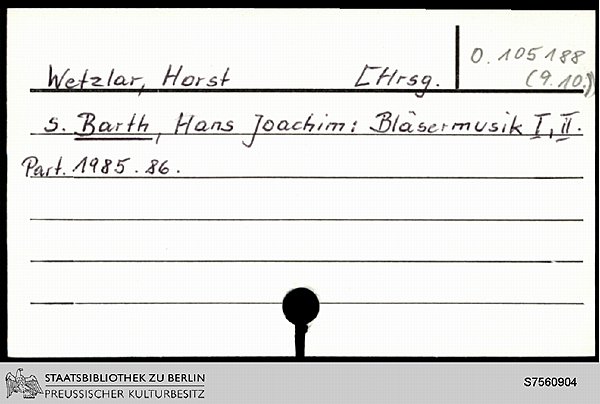 O. 105188
Wetzlar, Horst [Hrsg. (9.10.)
s. Barth, Hans Joachim: Bläsermusik I, II.
Part. 1985. 86.
STAATSBIBLIOTHEK ZU BERLIN
PREUSSISCHER KULTURBESITZ
S7560904